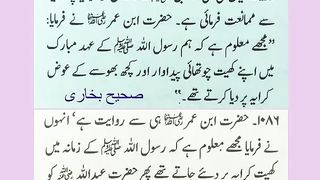 سے ممانعت فرمائی ہے۔ حضرت ابن عمر رضی اللہ عنہ نے فرمایا:
”مجھے معلوم ہے کہ ہم رسول اللہ ﷺ کے عہد مبارک
میں اپنے کھیت چوتھائی پیداوار اور کچھ بھوسے کے عوض
کرایہ پر دیا کرتے تھے۔“ صحیح بخاری
۱۰۸۶۔ حضرت ابن عمر رضی اللہ عنہ ہی سے روایت ہے‘ انہوں
نے فرمایا مجھے معلوم ہے کہ رسول اللہ ﷺ کے زمانہ میں
کھیت کرایہ پر دیے جاتے تھے پھر حضرت عبداللہ رضی اللہ عنہ کو